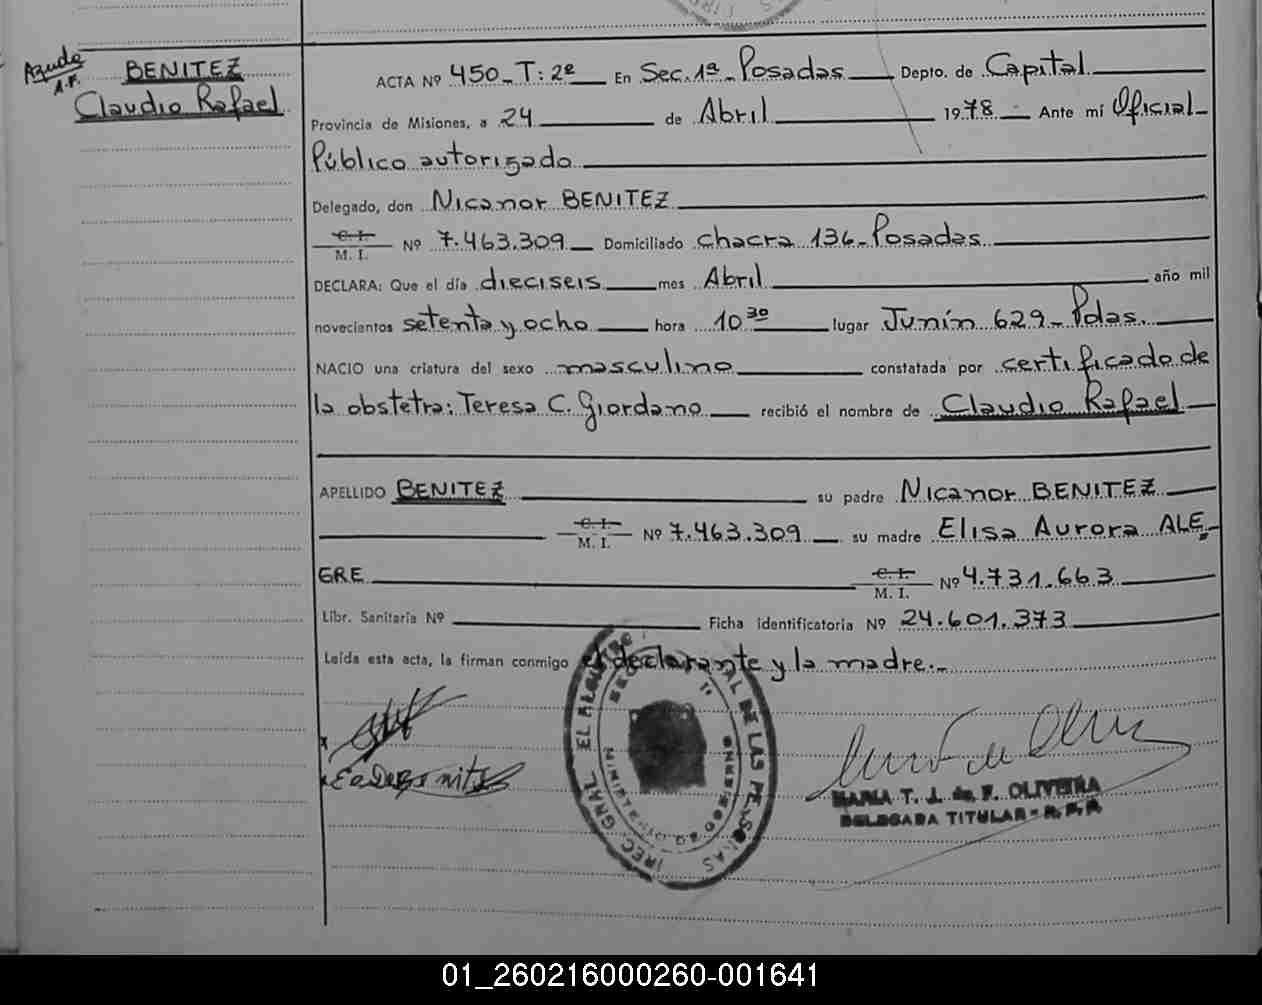 Ayude
A.F.
BENITEZ
Claudio Rafael
ACTA Nº 450_T:2º En Sec.1ª_Posadas Depto. de Capital
Provincia de Misiones, a 24 de Abril 1978 Ante mí Oficial
Público autorizado
Delegado, don Nicanor BENITEZ
C. I.
M. I. Nº 7.463.309 Domiciliado chacra 136_Posadas
DECLARA: Que el día dieciseis mes Abril año mil
novecientos setenta y ocho hora 10 30 lugar Junín 629_Pdas.
NACIO una criatura del sexo masculino constatada por certificado de
la obstetra: Teresa C. Giordano recibió el nombre de Claudio Rafael
APELLIDO BENITEZ su padre Nicanor BENITEZ
C. I.
M. I. Nº 7.463.309 su madre Elisa Aurora ALE-
GRE C. I.
M. I. Nº 4.731.663
Libr. Sanitaria Nº Ficha identificatoria Nº 24.601.373
Leída esta acta, la firman conmigo el declarante y la madre._
MARIA T. J. de F. OLIVEIRA
DELEGADA TITULAR - R.P.P.
01_260216000260-001641